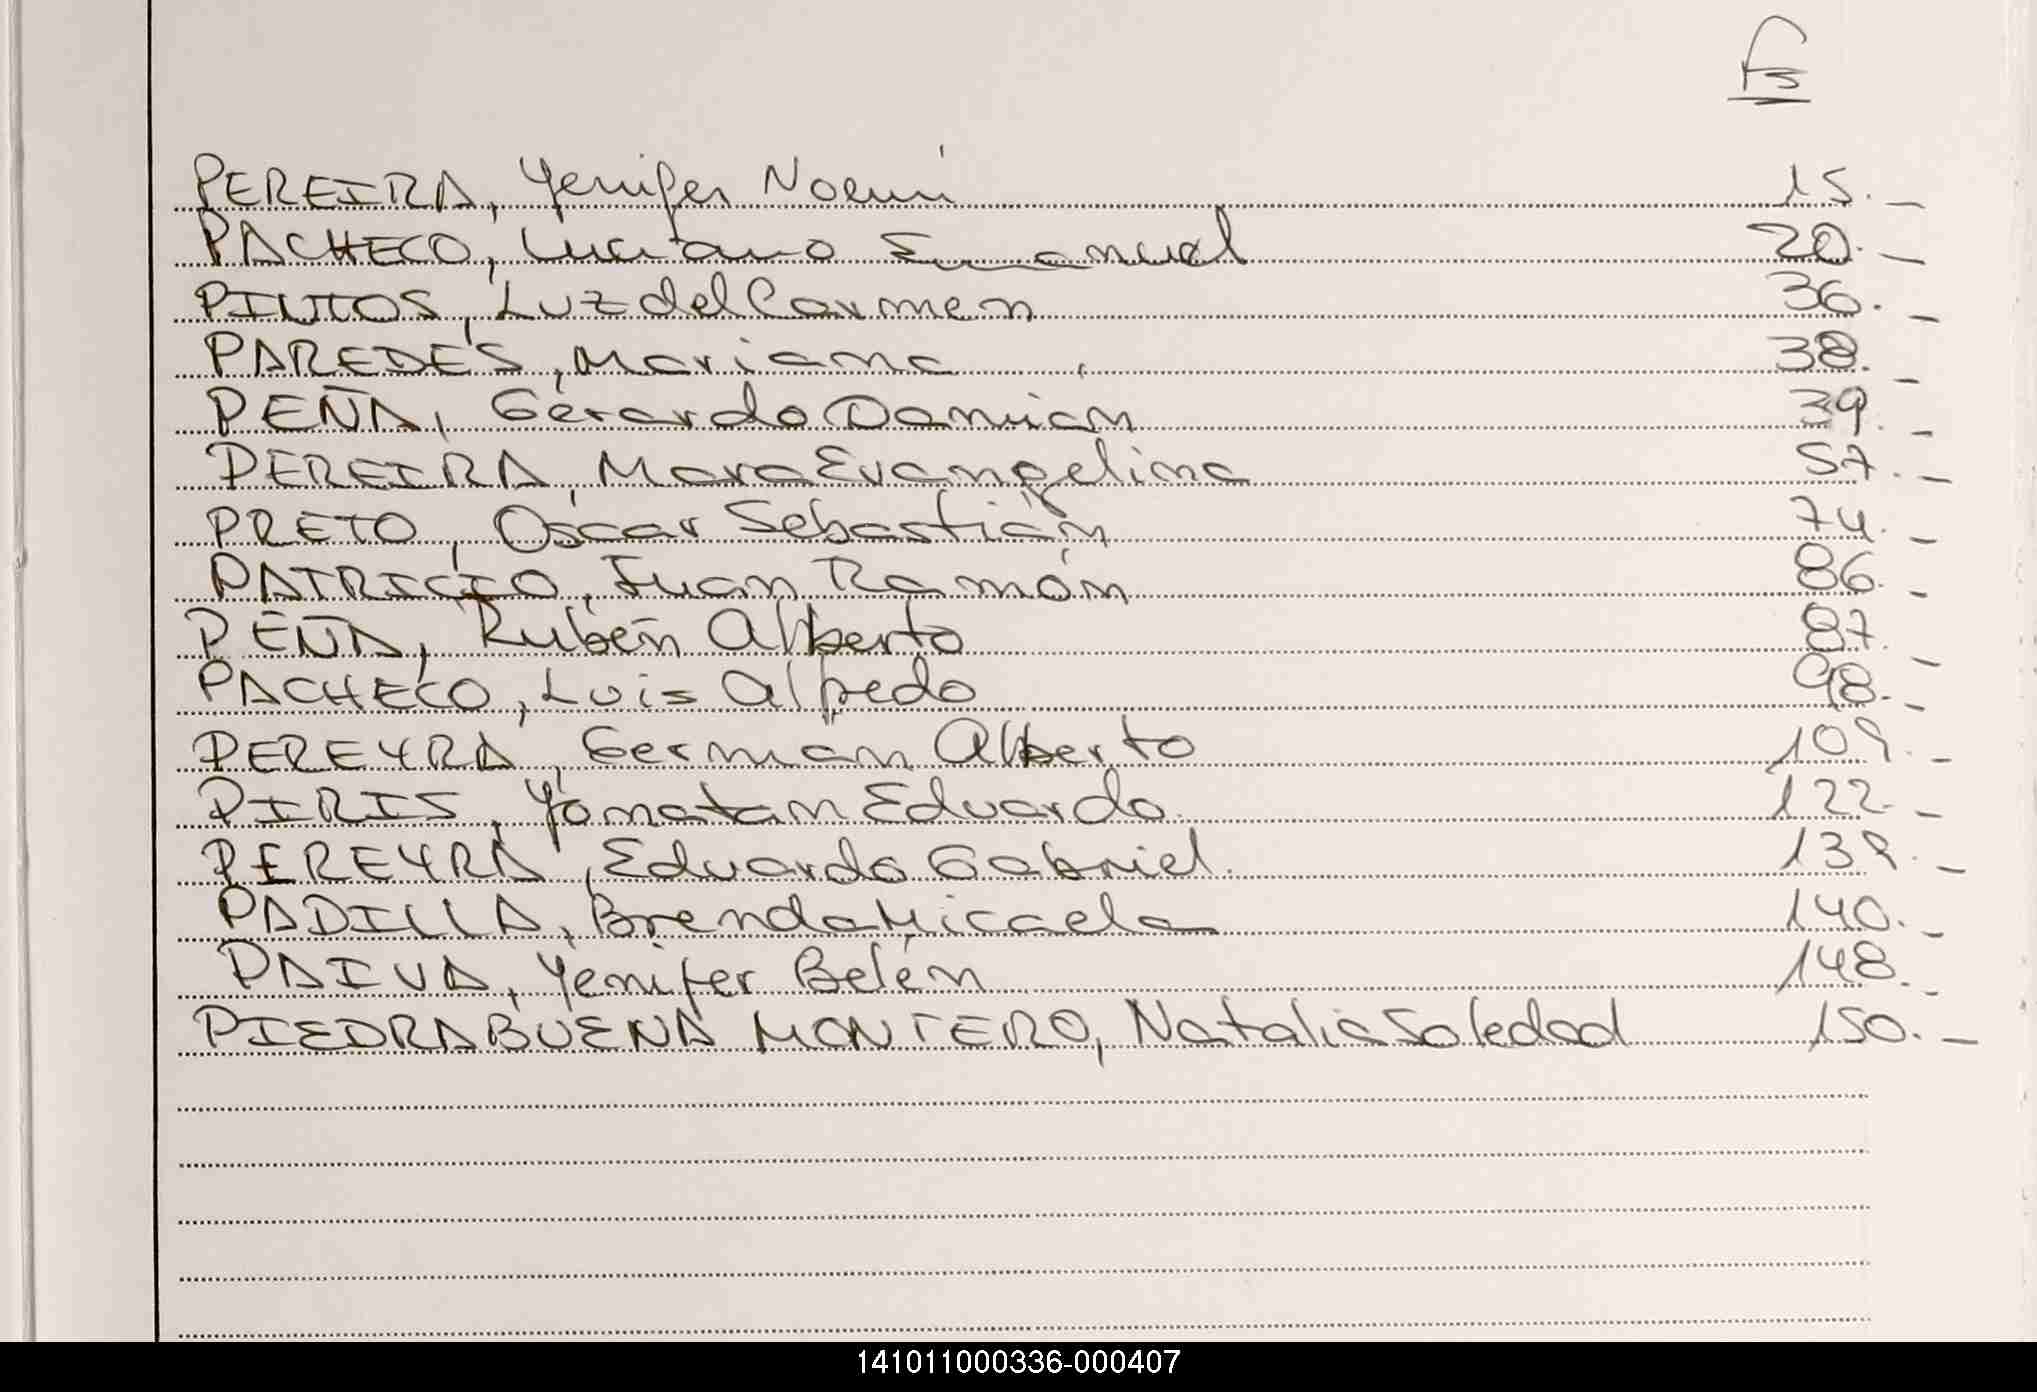 Fs
PEREIRA, Yenifer Noemí 15.-
PACHECO, Luciano Emanuel 20.-
PINTOS, Luz del Carmen 36.-
PAREDES, Mariana 38.-
PEÑA, Gerardo Damian 39.-
PEREIRA, Mara Evangelina 57.-
PRETO, Oscar Sebastián 74.-
PATRICIO, Juan Ramón 86.-
PEÑA, Rubén Alberto 87.-
PACHECO, Luis Alfredo 98.-
PEREYRA, German Alberto 109.-
PIRIS, Yonatan Eduardo 122.-
PEREYRA, Eduardo Gabriel 139.-
PADILLA, Brenda Micaela 140.-
PAIVA, Yenifer Belén 148.-
PIEDRABUENA MONTERO, Natalia Soledad 150.-
141011000336-000407